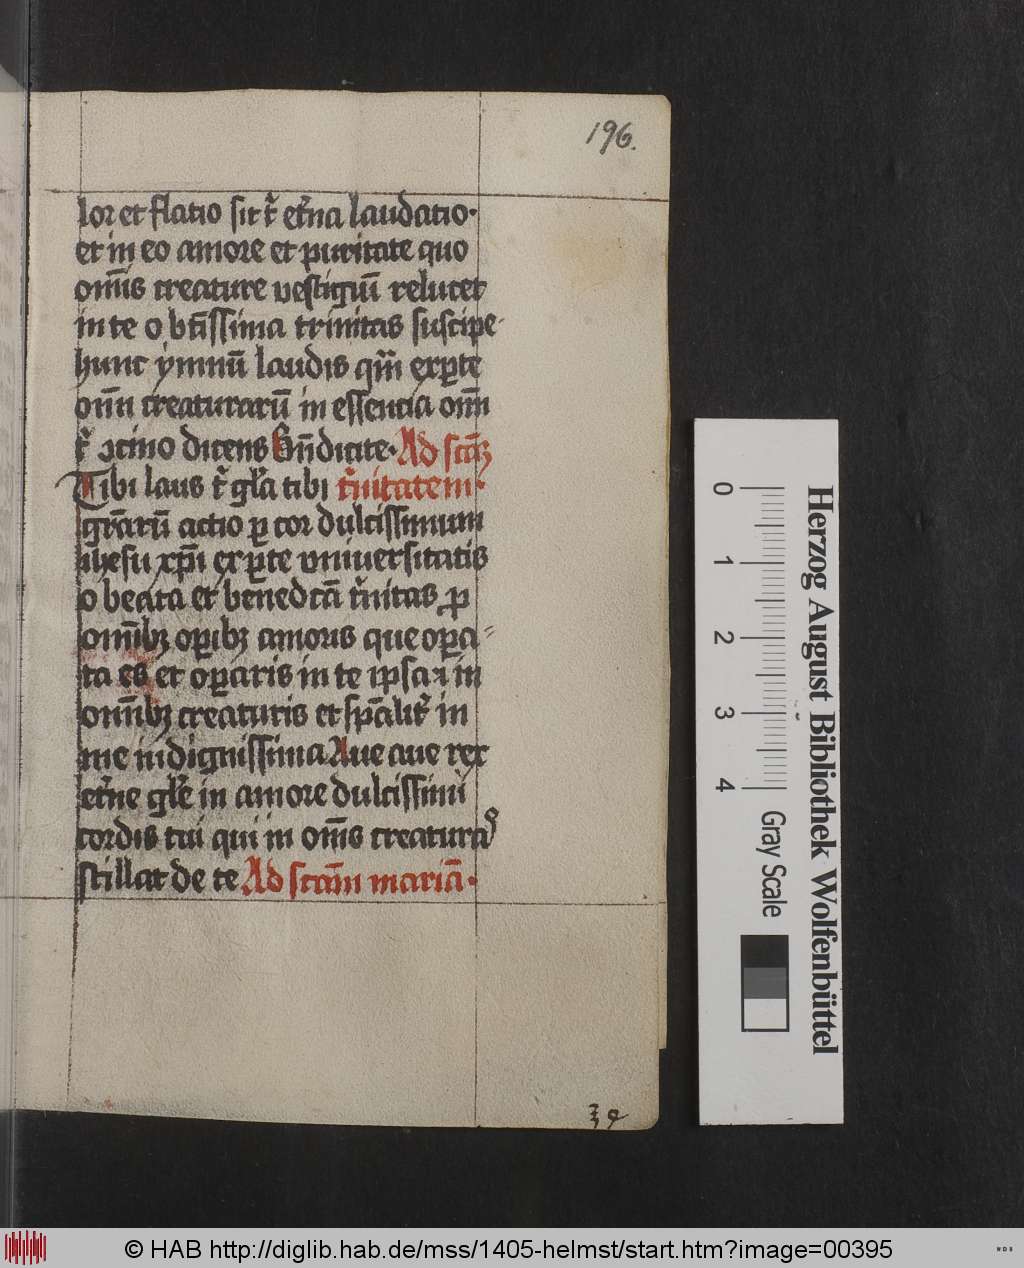 196.
lor et flatio sit t᷑ et᷑na laudatio·
et in eo amore et puritate quo
om̅is creature vestigiu̅ relucet
in te o bt̅issima trinitas suscipe
hunc ymnu̅ laudis que̅ ex ꝑte
om̅i creaturaru̅ in essencia om̅i
t᷑ ↄcino dicens Bn̅dicite· Ad sc̅aꝫ
Tibi laus t᷑ gl̅a tibi t᷑nitatem·
gr̅aru̅ actio ꝑ cor dulcissimum
ihesu xp̅i ex ꝑte vniuersitatis
o beata et benedc̅a t᷑nitas ꝓ
om̅ibꝫ oꝑibꝫ amoris que oꝑa⸗
ta es et oꝑaris in te ipsa ⁊ in
om̅ibꝫ creaturis et sp̅alit᷑ in
me indignissima Aue aue rex
et᷑ne gl̅e in amore dulcissimi
cordis tui qui in om̅s creaturas
stillat de te Ad sc̅am maria̅·
Herzog August Bibliothek Wolfenbüttel
0 1 2 3 4
Gray Scale
© HAB http://diglib.hab.de/mss/1405-helmst/start.htm?image=00395